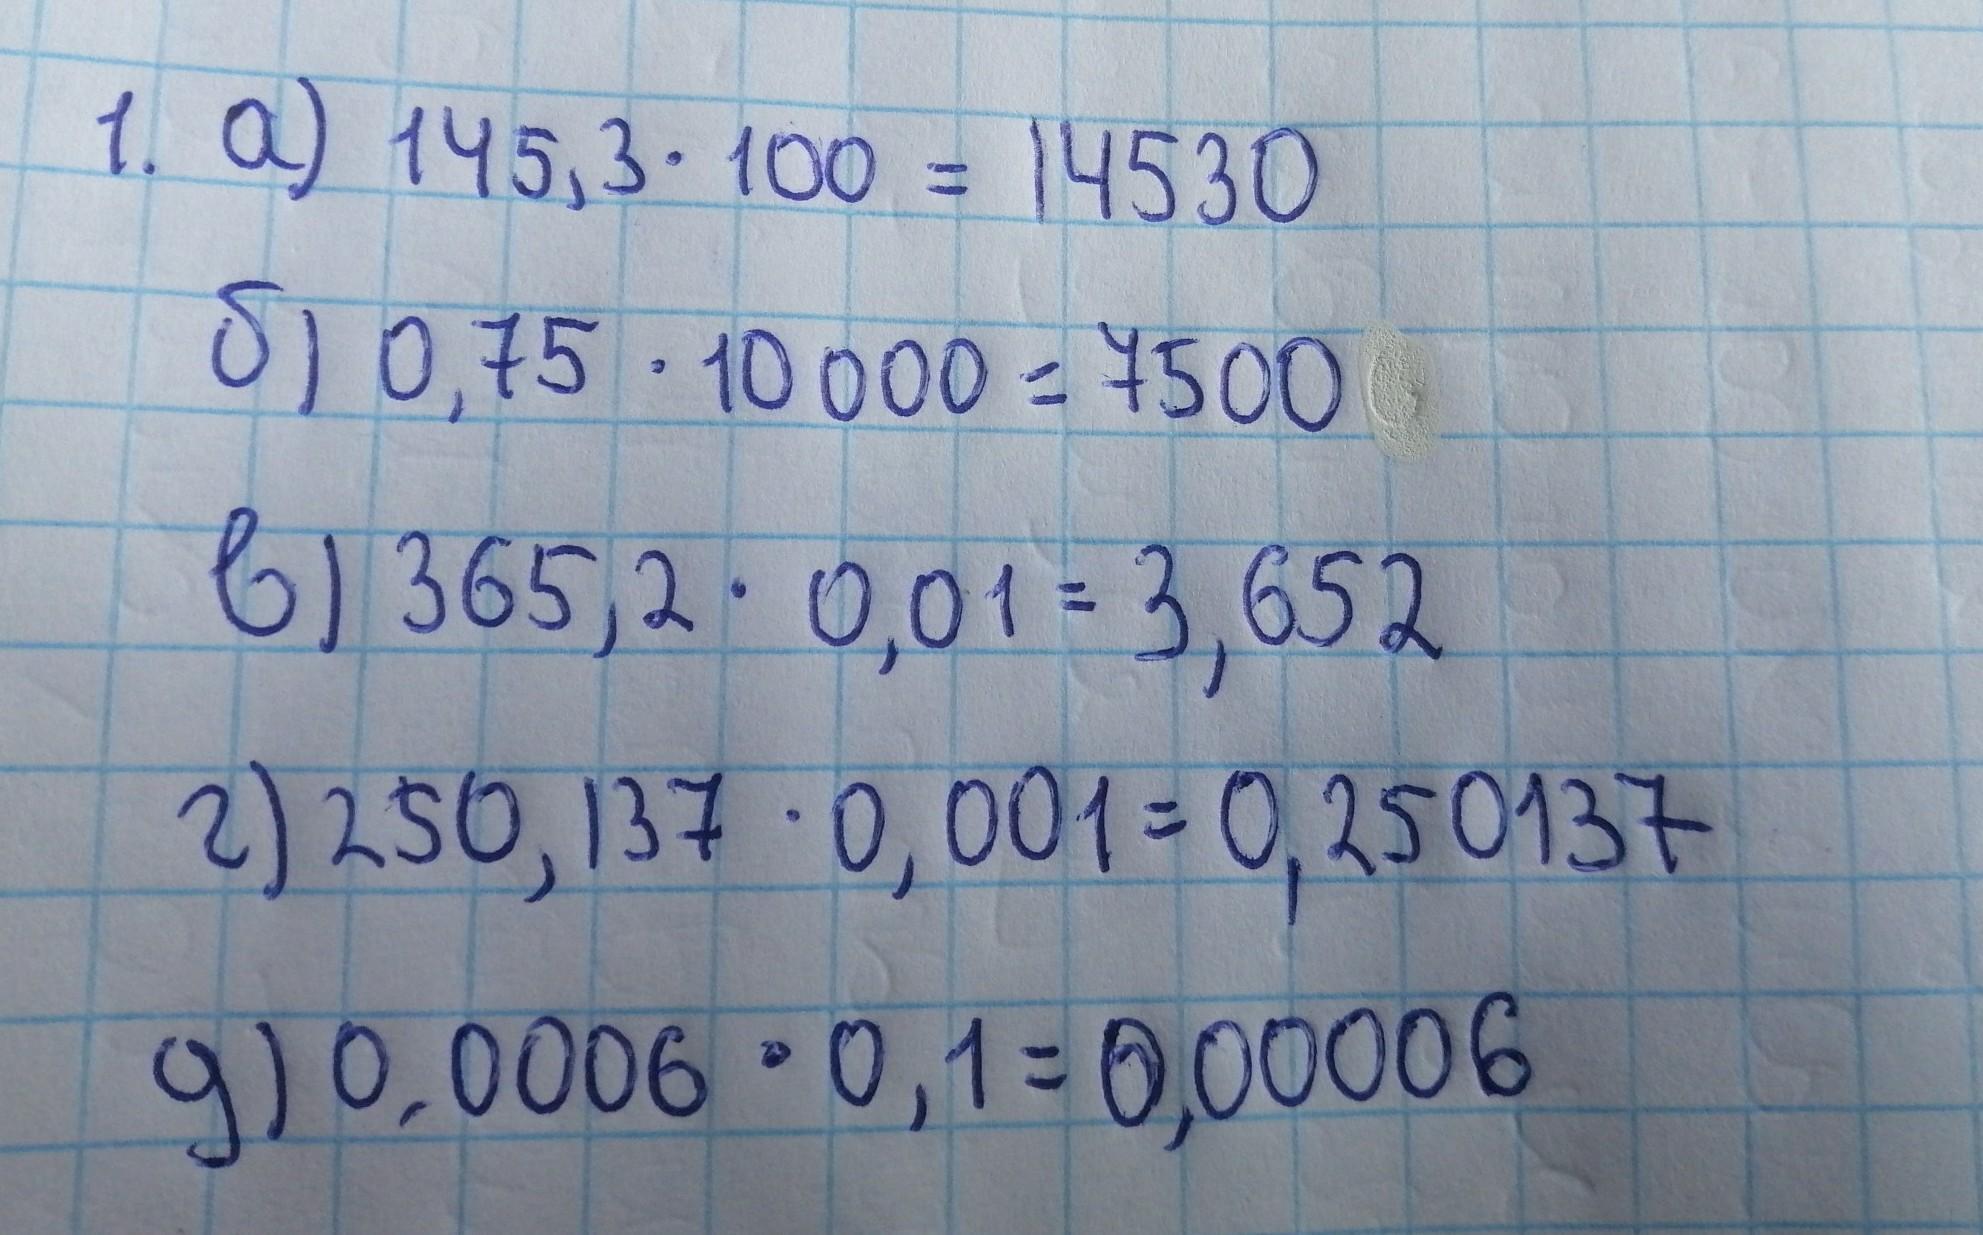 1. а) 145,3 · 100 = 14530
б) 0,75 · 10000 = 7500
в) 365,2 · 0,01 = 3,652
г) 250,137 · 0,001 = 0,250137
д) 0,0006 · 0,1 = 0,00006